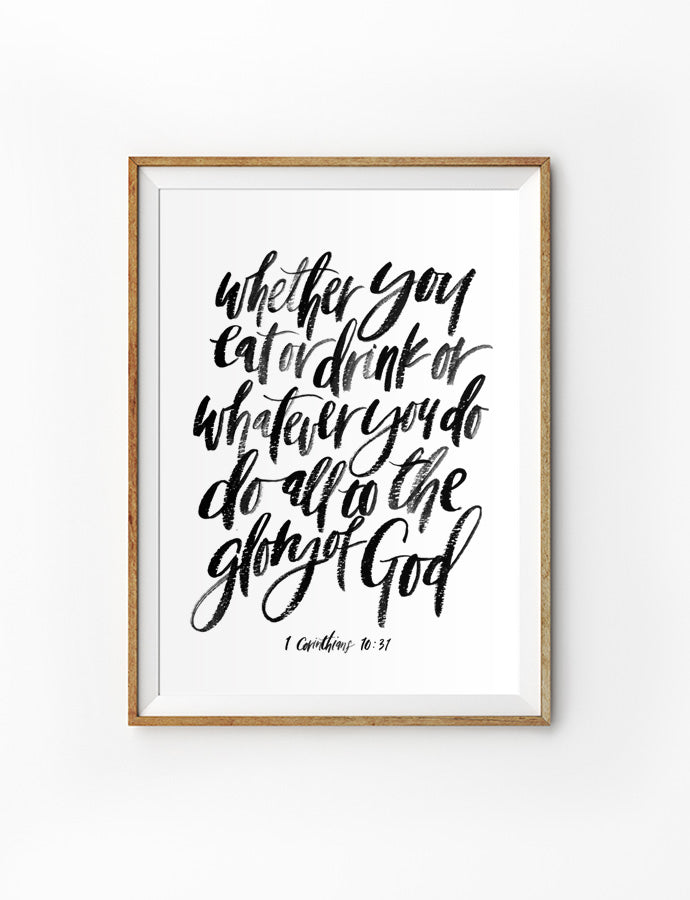 whether you
eat or drink or
whatever you do
do all to the
glory of God
1 Corinthians 10:31